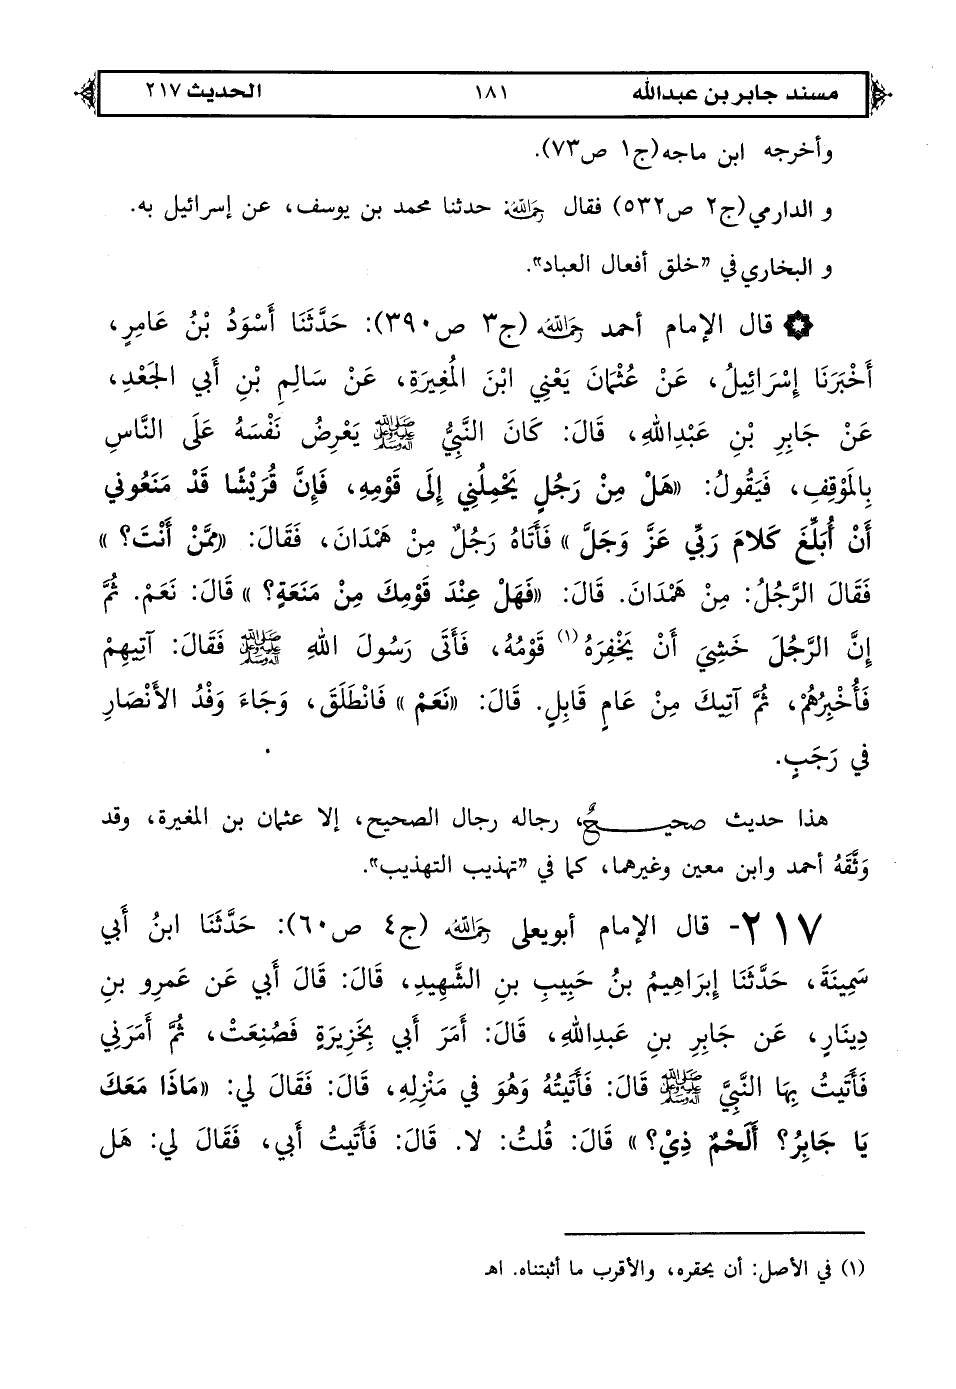 مسند جابر بن عبدالله ١٨١ الحديث ٢١٧
وأخرجه ابن ماجه (ج١ ص٧٣).
و الدارمي (ج٢ ص٥٣٢) فقال رحمه الله: حدثنا محمد بن يوسف، عن إسرائيل به.
و البخاري في "خلق أفعال العباد".
قال الإمام أحمد رحمه الله (ج٣ ص٣٩٠): حَدَّثَنَا أَسْوَدُ بْنُ عَامِرٍ،
أَخْبَرَنَا إِسْرَائِيلُ، عَنْ عُثْمَانَ يَعْنِي ابْنَ الْمُغِيرَةِ، عَنْ سَالِمِ بْنِ أَبِي الْجَعْدِ،
عَنْ جَابِرِ بْنِ عَبْدِاللهِ، قَالَ: كَانَ النَّبِيُّ ﷺ يَعْرِضُ نَفْسَهُ عَلَى النَّاسِ
بِالْمَوْقِفِ، فَيَقُولُ: «هَلْ مِنْ رَجُلٍ يَحْمِلُنِي إِلَى قَوْمِهِ، فَإِنَّ قُرَيْشًا قَدْ مَنَعُونِي
أَنْ أُبَلِّغَ كَلَامَ رَبِّي عَزَّ وَجَلَّ» فَأَتَاهُ رَجُلٌ مِنْ هَمْدَانَ، فَقَالَ: «مِمَّنْ أَنْتَ؟»
فَقَالَ الرَّجُلُ: مِنْ هَمْدَانَ. قَالَ: «فَهَلْ عِنْدَ قَوْمِكَ مِنْ مَنَعَةٍ؟» قَالَ: نَعَمْ. ثُمَّ
إِنَّ الرَّجُلَ خَشِيَ أَنْ يَخْفِرَهُ(١) قَوْمُهُ، فَأَتَى رَسُولَ اللهِ ﷺ فَقَالَ: آتِيهِمْ
فَأُخْبِرُهُمْ، ثُمَّ آتِيكَ مِنْ عَامٍ قَابِلٍ. قَالَ: «نَعَمْ» فَانْطَلَقَ، وَجَاءَ وَفْدُ الْأَنْصَارِ
فِي رَجَبٍ.
هذا حديث صحيحٌ، رجاله رجال الصحيح، إلا عثمان بن المغيرة، وقد
وَثَّقَهُ أحمد وابن معين وغيرهما، كما في "تهذيب التهذيب".
٢١٧- قال الإمام أبويعلى رحمه الله (ج٤ ص٦٠): حَدَّثَنَا ابنُ أَبي
سَمِينَةَ، حَدَّثَنَا إِبرَاهِيمُ بنُ حَبِيبِ بنِ الشَّهِيدِ، قَالَ: قَالَ أَبي عَن عَمرِو بنِ
دِينَارٍ، عَن جَابِرِ بنِ عَبدِاللهِ، قَالَ: أَمَرَ أَبي بِخَزِيرَةٍ فَصُنِعَتْ، ثُمَّ أَمَرَنِي
فَأَتَيتُ بِهَا النَّبِيَّ ﷺ قَالَ: فَأَتَيتُهُ وَهُوَ فِي مَنْزِلِهِ، قَالَ: فَقَالَ لي: «مَاذَا مَعَكَ
يَا جَابِرُ؟ أَلَحْمٌ ذِيْ؟» قَالَ: قُلتُ: لا. قَالَ: فَأَتَيتُ أَبي، فَقَالَ لي: هَل
(١) في الأصل: أن يحقره، والأقرب ما أثبتناه. اهـ